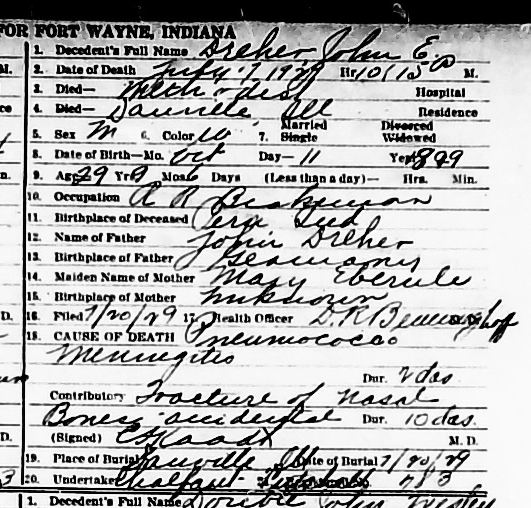 FOR FORT WAYNE, INDIANA
1. Decedent's Full Name Dreher, John E.
2. Date of Death July 1929 Hr. 10/15 P M.
3. Died— Methodist Hospital
4. Died— Danville Ill Residence
5. Sex M 6. Color W 7. Married Single Divorced Widowed
8. Date of Birth—Mo. Oct Day— 11 Year 1899
9. Age 29 Yrs Mos Days (Less than a day)— Hrs. Min.
10. Occupation R R Brakeman
11. Birthplace of Deceased Peru Ind
12. Name of Father John Dreher
13. Birthplace of Father Germany
14. Maiden Name of Mother Mary Eberule
15. Birthplace of Mother Unknown
16. Filed 7/20/29 17. Health Officer D. R. M. D.
18. CAUSE OF DEATH Pneumococco
Meningitis
Dur. 2 das
Contributory Fracture of Nasal
Bones accidental Dur. 10 das.
(Signed) M. D.
19. Place of Burial Danville Ill Date of Burial 7/20/29
20. Undertaker
1. Decedent's Full Name John Wesley